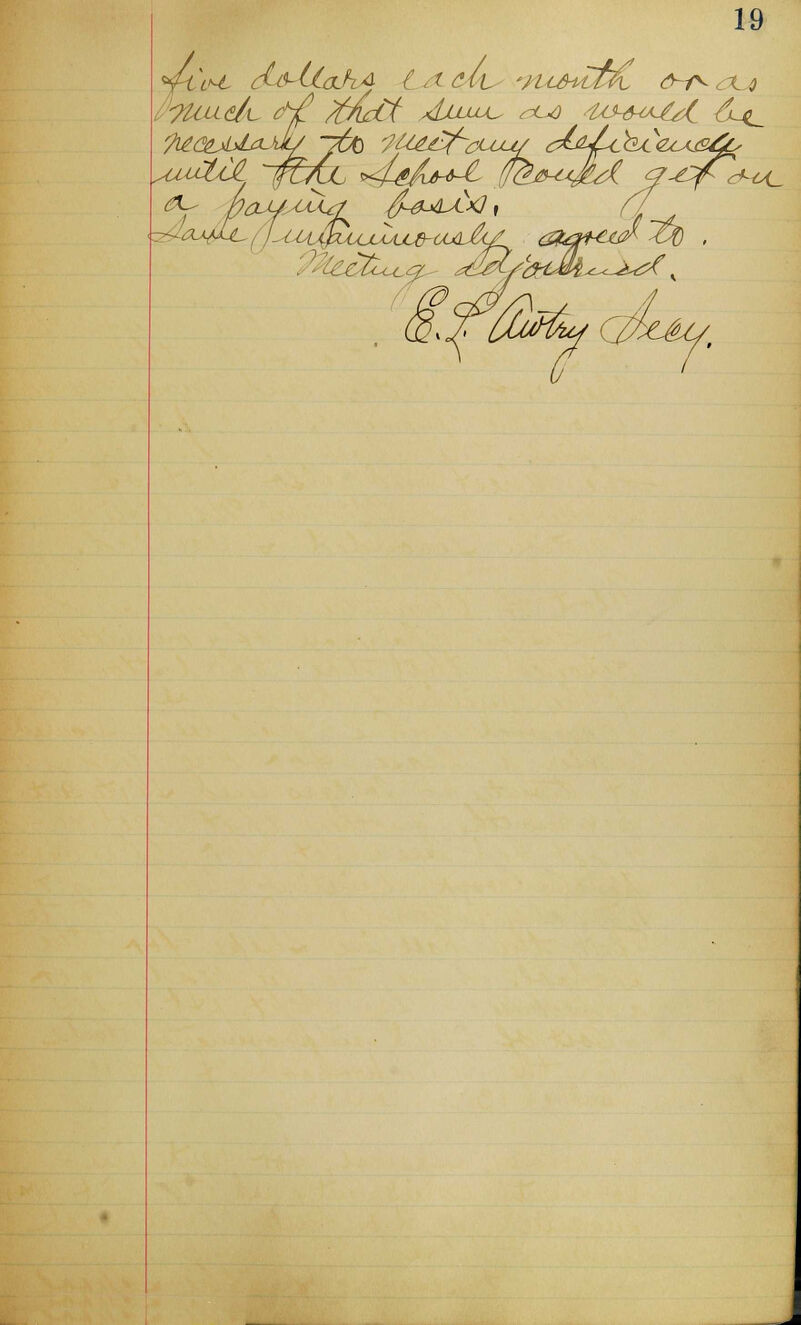 19
five dollars each month or as
much of that sum as would be
necessary to meet any deficiency
until the school should get on
a paying basis,
Same unanimously agreed to.
Meeting adjourned.
E. P. Awtry Secy.